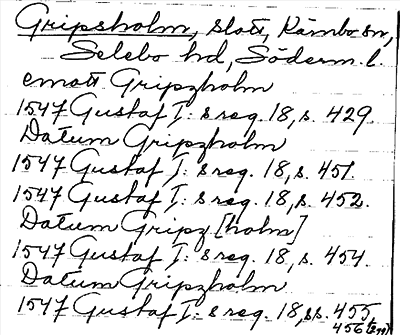 Gripsholm, slott, Kärnbo sn,
Selebo hd, Söderm. l.
emott Gripzholm
1547 Gustaf I: s reg. 18, s. 429.
Datum Gripzholm
1547 Gustaf I: s reg. 18, s. 451.
1547 Gustaf I: s reg. 18, s. 452.
Datum Gripz [holm]
1547 Gustaf I: s reg. 18, s. 454.
Datum Gripzholm
1547 Gustaf I: s reg. 18, ss. 455,
456